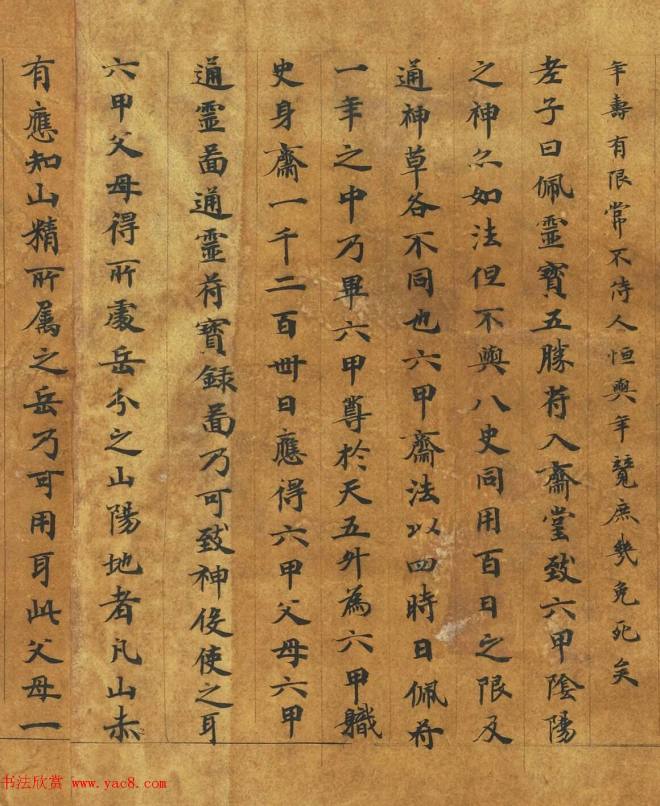 年壽有限常不待人恒與年競庶幾免死矣
老子曰佩靈寶五勝苻入齋堂致六甲陰陽
之神亦如法但不與八史同用百日之限及
通神草各不同也六甲齋法以四時日佩苻
一年之中乃畢六甲尊於天五外為六甲軄
史身齋一千二百卅日應得六甲父母六甲
通靈啚通靈苻寶録啚乃可致神役使之耳
六甲父母得所處岳分之山陽地者凡山未
有應知山精所属之岳乃可用耳此父母一
书法欣赏 www.yac8.com